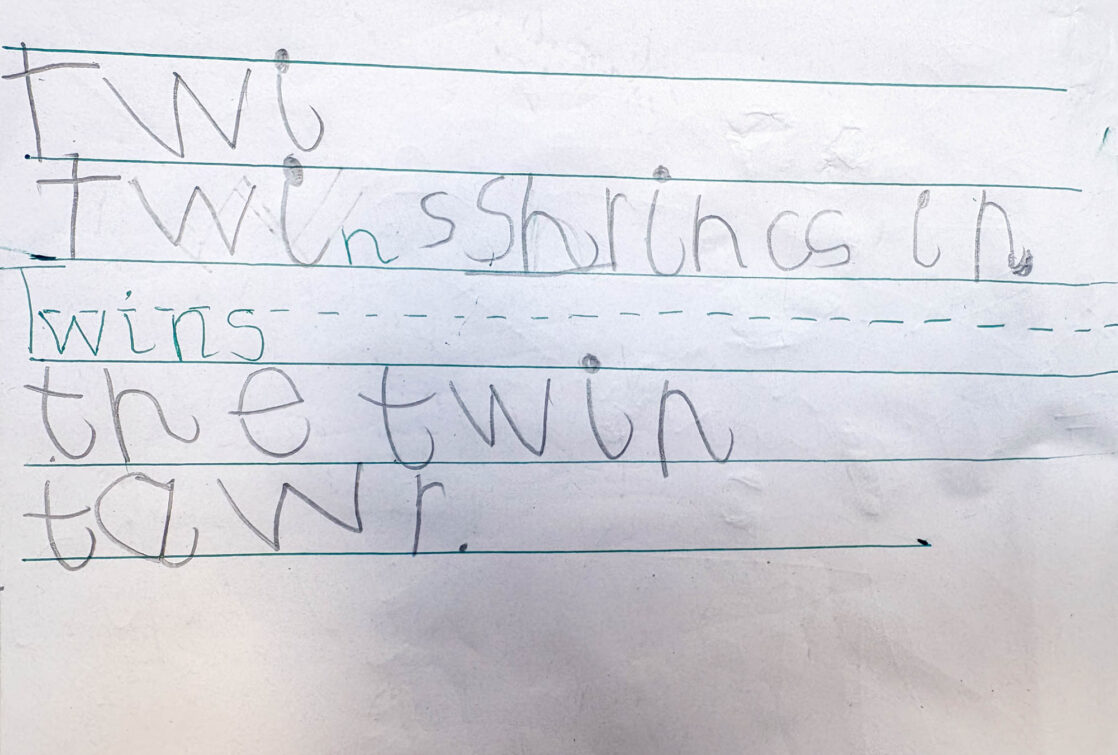 Twi
Twins shrincs in.
Twins
the twin
tawr.